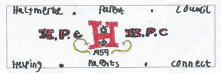 Halfmerke . Parent . Council
H.P.C H H.P.C
1959
Helping . Parents . Connect